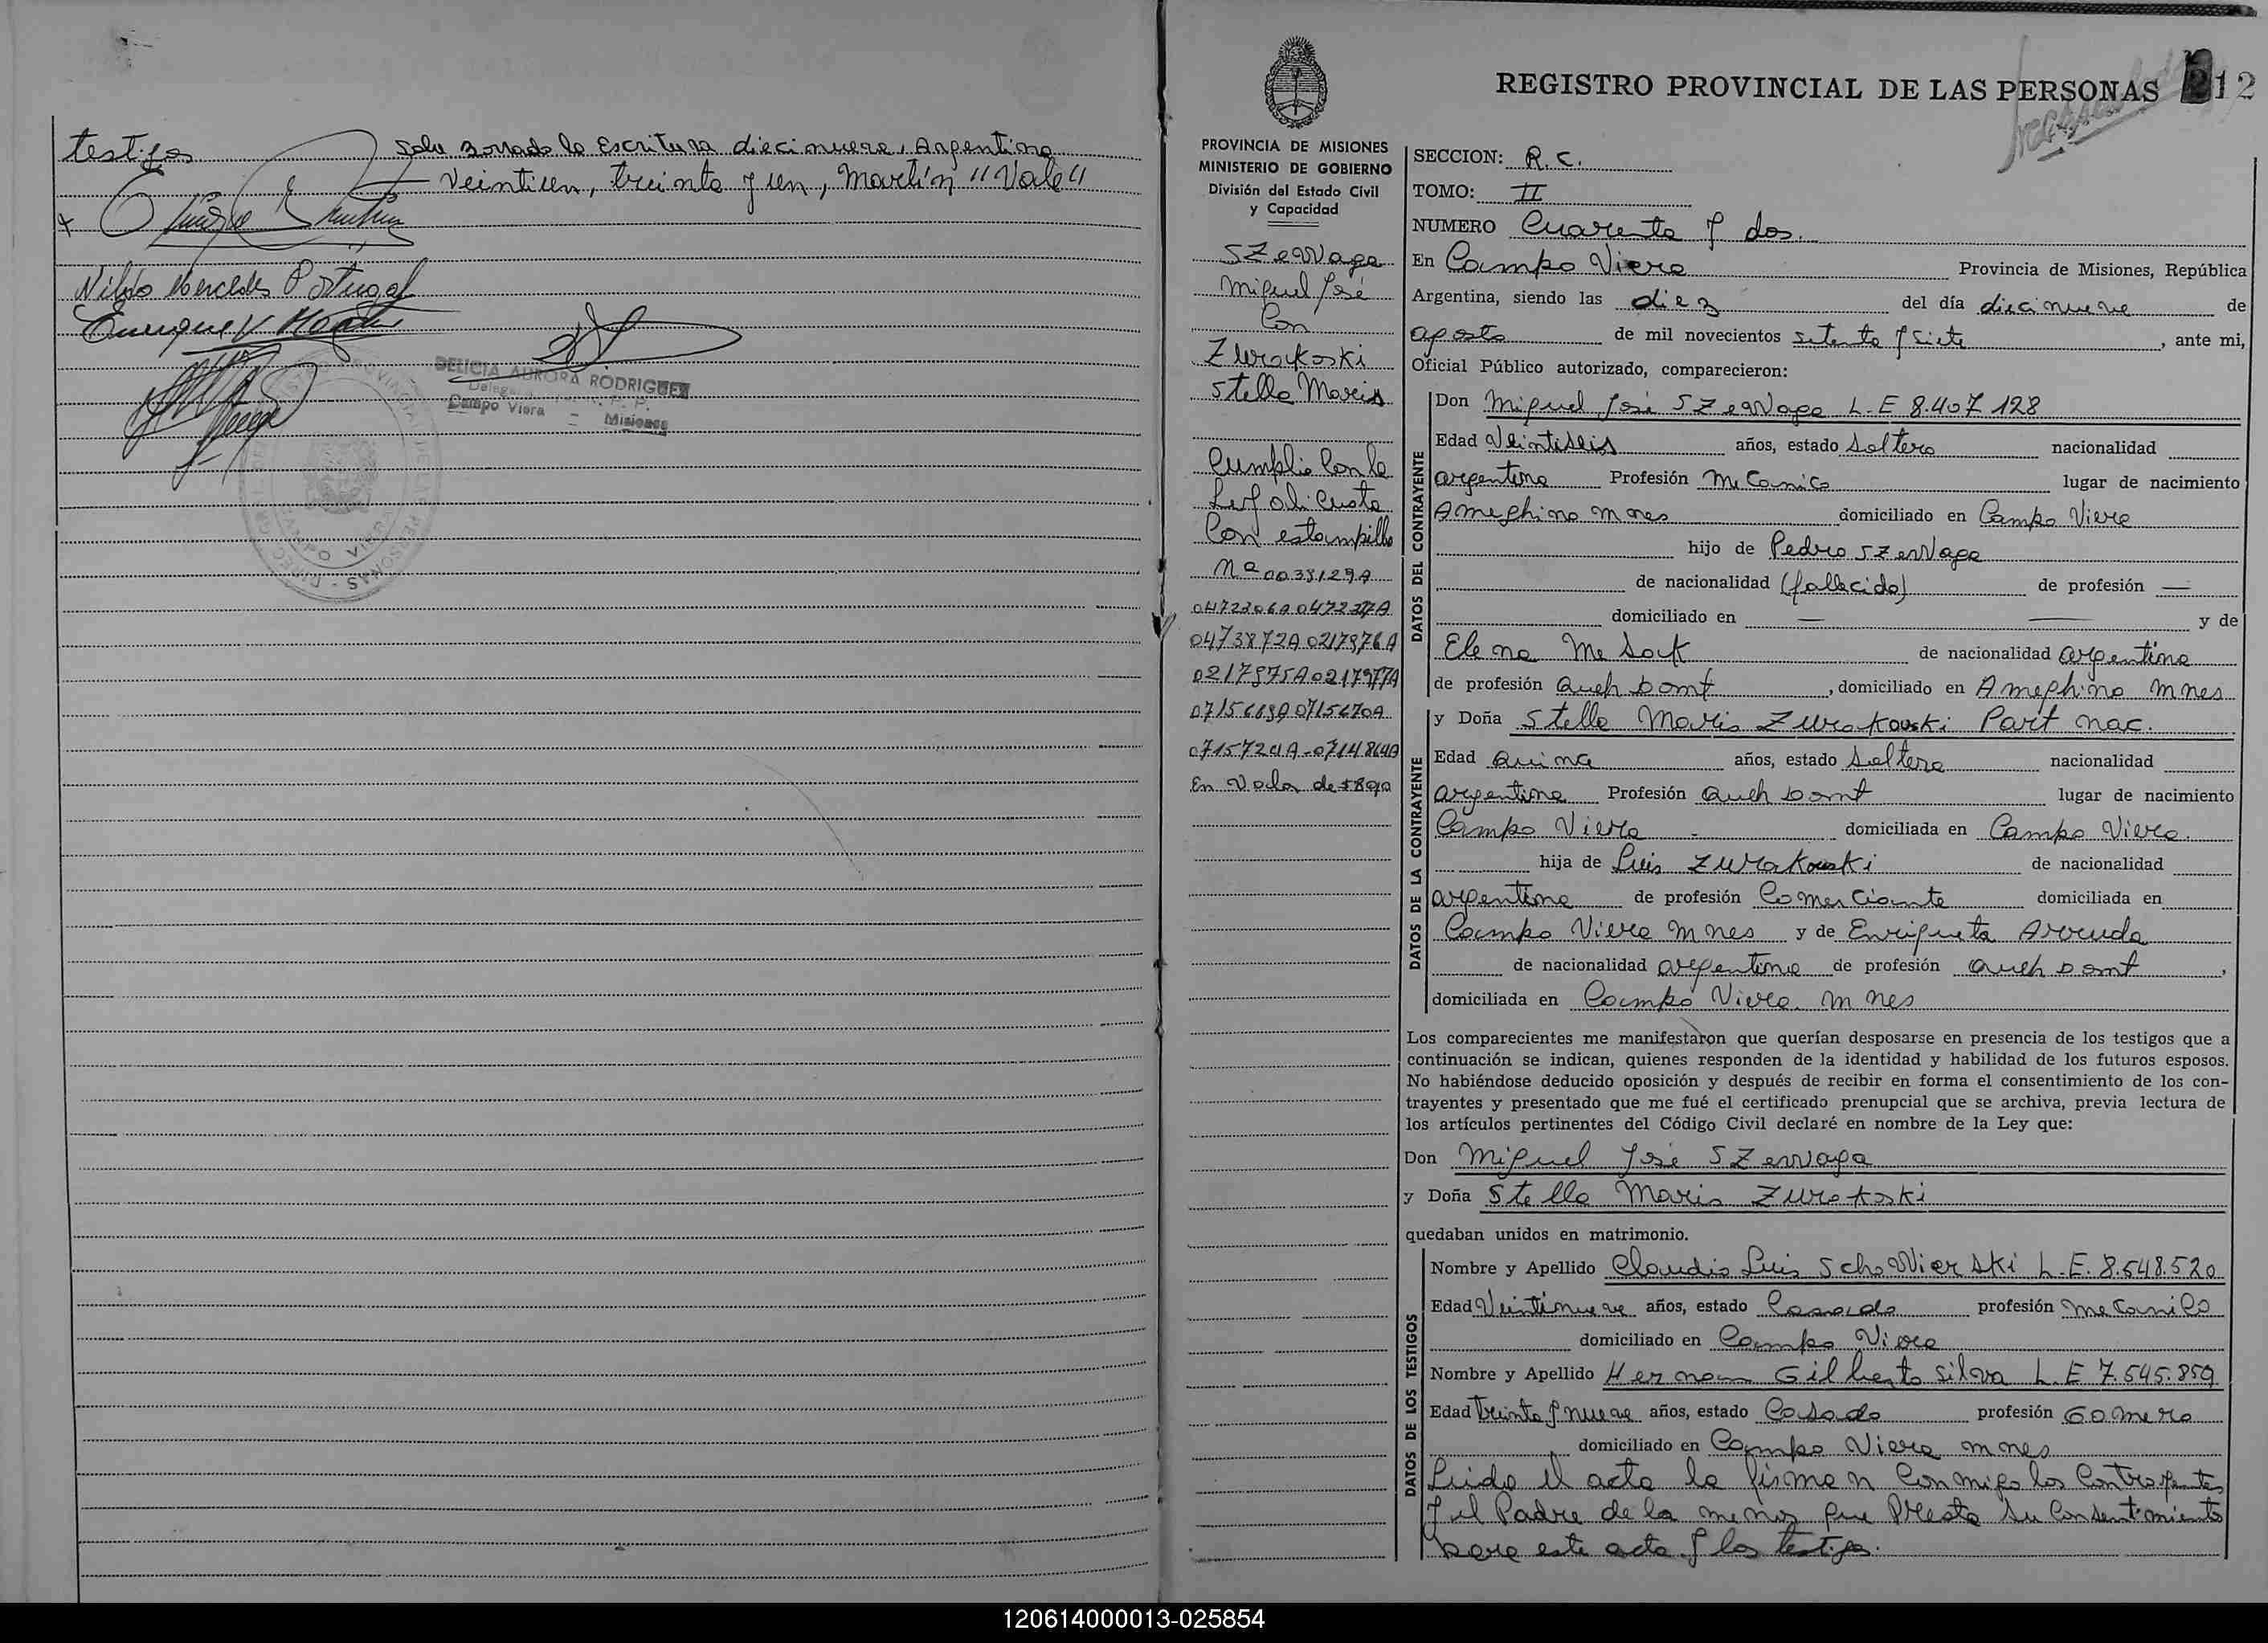 testigos
Sobre borrado la Escritura diecinueve, Argentina
Veintiun, treinta y un, Martín "Vale"
Nilda Mercedes Portugal
Enrique
DELICIA AURORA RODRIGUEZ
Campo Viera - Misiones
REGISTRO PROVINCIAL DE LAS PERSONAS
12
PROVINCIA DE MISIONES
MINISTERIO DE GOBIERNO
División del Estado Civil
y Capacidad
Szewaga
Miguel José
Con
Zurakoski
Stella Maris
Cumplio con la
Ley ali cuota
Con estampilla
Nº 0038129A
0473872A 0217976A
0217975A 0217977A
0715669A 0715670A
En Valor de $890
SECCION: R.C.
TOMO: II
NUMERO Cuarenta y dos.
En Campo Viera Provincia de Misiones, República
Argentina, siendo las diez del día diecinueve de
agosto de mil novecientos setenta y siete, ante mi,
Oficial Público autorizado, comparecieron:
DATOS DEL CONTRAYENTE
Don Miguel José Szewaga L.E 8.407.128
Edad Veintiseis años, estado Soltero nacionalidad
argentina Profesión Mecanico lugar de nacimiento
Ameghino Mnes domiciliado en Campo Viera
hijo de Pedro Szewaga
de nacionalidad (fallecido) de profesión —
domiciliado en — — y de
Elena Mesok de nacionalidad argentina
de profesión Queh Domt, domiciliado en Ameghino Mnes
DATOS DE LA CONTRAYENTE
y Doña Stella Maris Zurakouski Part nac.
Edad Quince años, estado Soltera nacionalidad
argentina Profesión Queh Domt lugar de nacimiento
Campo Viera - domiciliada en Campo Viera.
hija de Luis Zurakouski de nacionalidad
argentina de profesión Comerciante domiciliada en
Campo Viera Mnes y de Enriqueta Arruda
de nacionalidad argentina de profesión Queh Domt,
domiciliada en Campo Viera Mnes
Los comparecientes me manifestaron que querían desposarse en presencia de los testigos que a
continuación se indican, quienes responden de la identidad y habilidad de los futuros esposos.
No habiéndose deducido oposición y después de recibir en forma el consentimiento de los con-
trayentes y presentado que me fué el certificado prenupcial que se archiva, previa lectura de
los artículos pertinentes del Código Civil declaré en nombre de la Ley que:
Don Miguel José Szewaga
y Doña Stella Maris Zurakoski
quedaban unidos en matrimonio.
DATOS DE LOS TESTIGOS
Nombre y Apellido Claudio Luis Schowierski L.E. 8.548.520
Edad Veintinueve años, estado Casado profesión mecanico
domiciliado en Campo Viera
Nombre y Apellido Hernan Gilberto Silva L.E 7.545.859
Edad Treinta y nueve años, estado Casado profesión Gomero
domiciliado en Campo Viera Mnes
Leido el acta la firman conmigo los Contrayentes
y el Padre de la menor que Presta su Consentimiento
para este acto y los testigos.
120614000013-025854